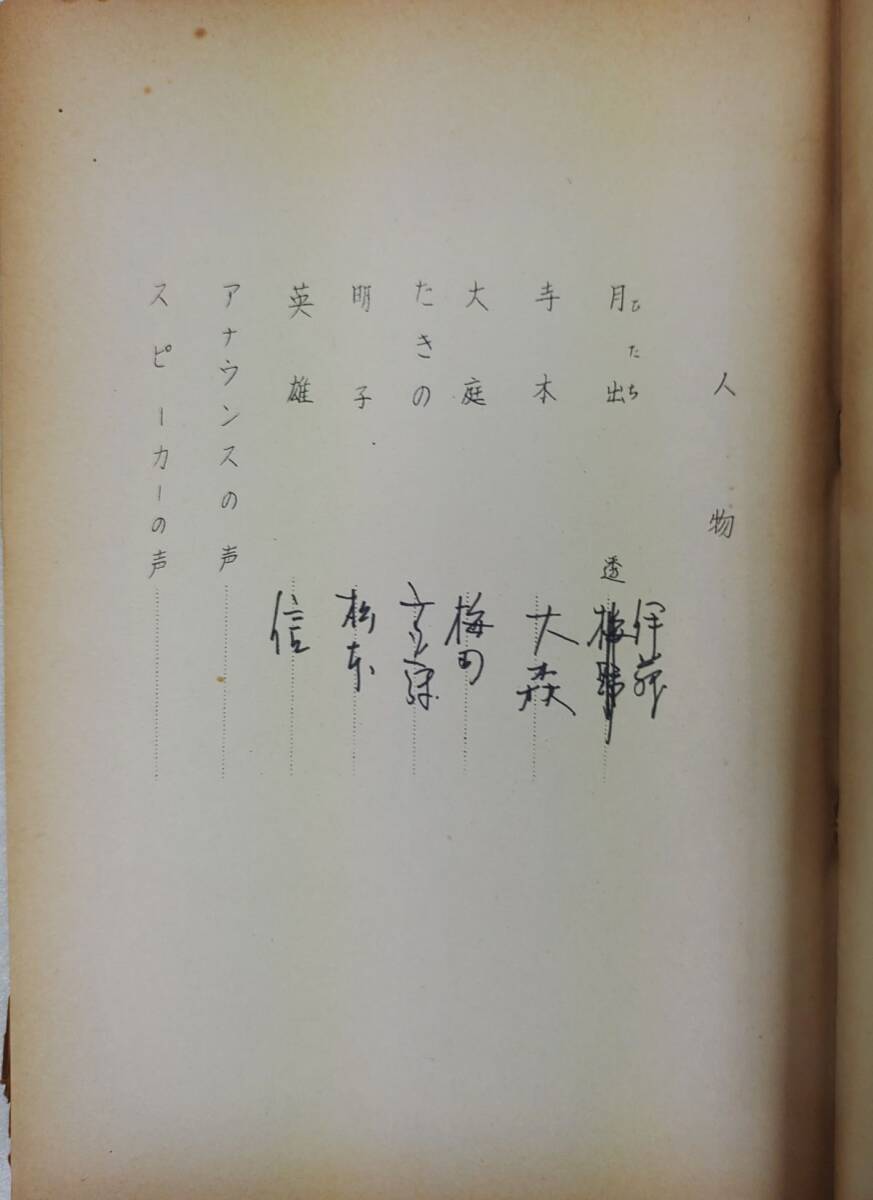 人物
月出 ひたち 透 伊藤
寺木 大森
大庭 梅田
たきの
明子 松本
英雄 信
アナウンスの声
スピーカーの声